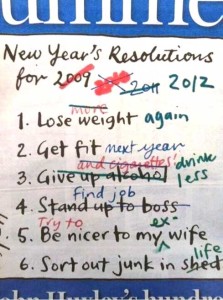 New Year's Resolutions
for 2009 2011 2012
more
1. Lose weight again
2. Get fit next year
and cigarettes!
3. Give up alcohol drink less
Find job
4. Stand up to boss
Try to ex-
5. Be nicer to my wife
life
6. Sort out junk in shed